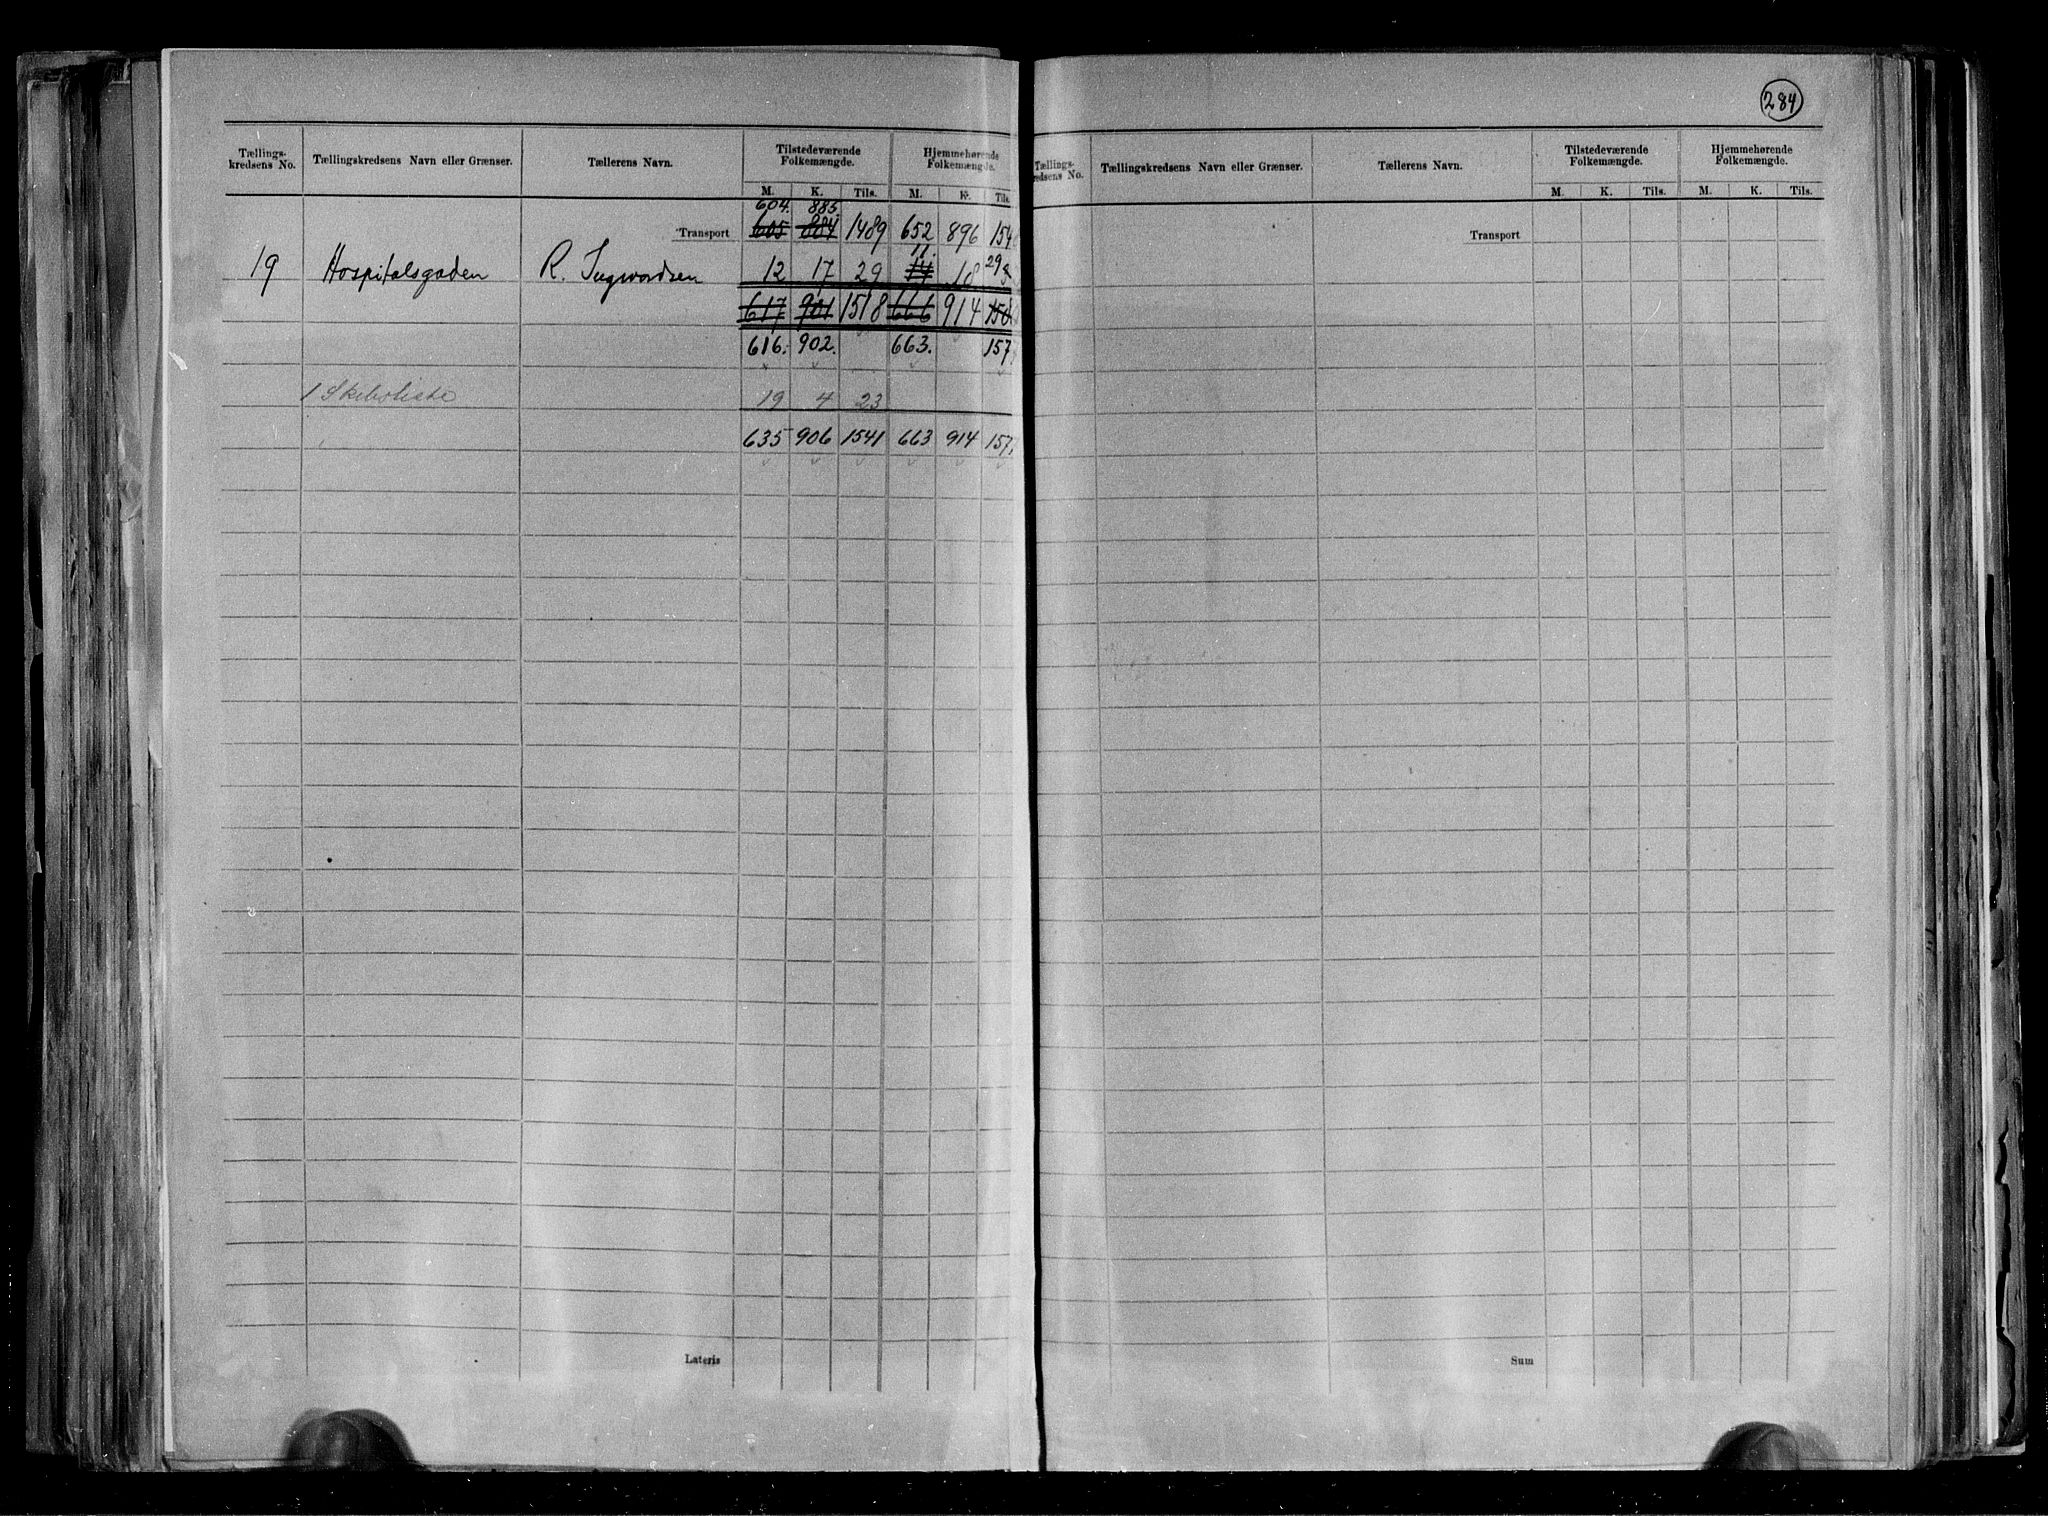 284
Tællings-kredsens No. Tællingskredsens Navn eller Grænser. Tællerens Navn. Tilstedeværende Folkemængde. Hjemmehørende Folkemængde.
M. K. Tils. M. K. Tils.
604. 885.
Transport 605 884 1489 652 896 154
11. 29
19 Hospitalsgaden R. Ingwardsen 12 17 29 14 18
617 901 1518 666 914
616. 902. 663. 157
1 Skibsliste 19 4 23
635 906 1541 663 914 157
Lateris
Tællings-redsens No. Tællingskredsens Navn eller Grænser. Tællerens Navn. Tilstedeværende Folkemængde. Hjemmehørende Folkemængde.
M. K. Tils. M. K. Tils.
Transport
Sum